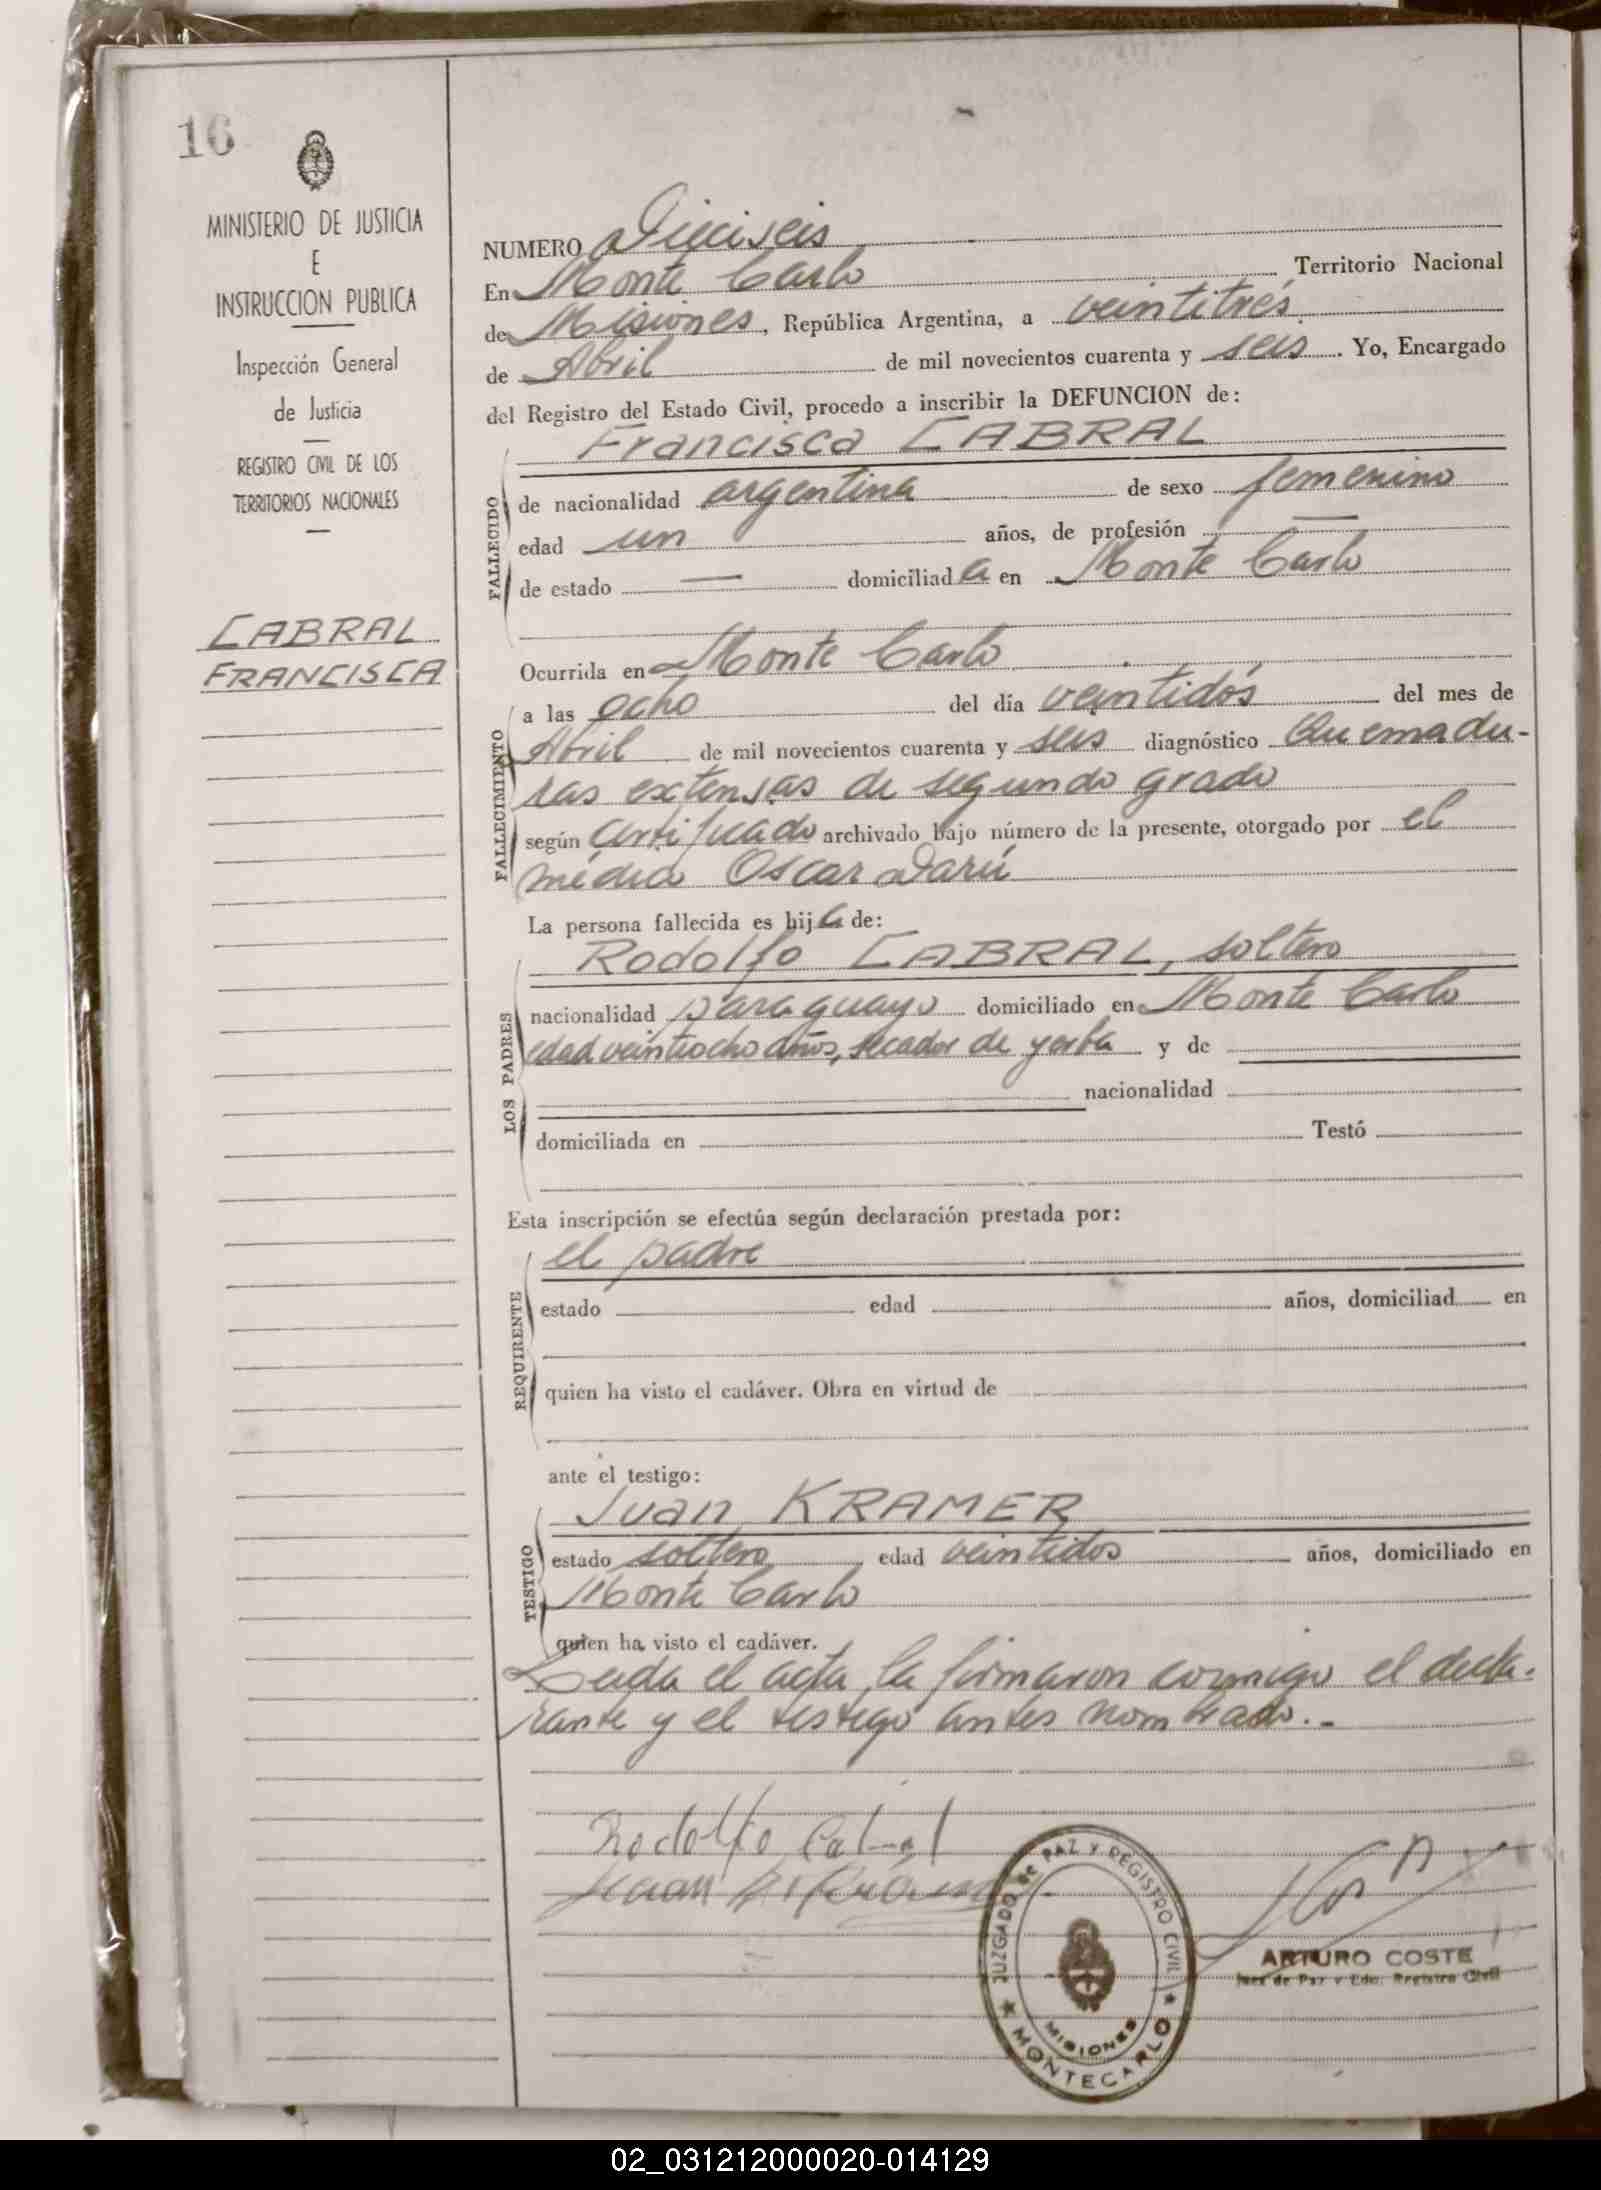 16
MINISTERIO DE JUSTICIA
E
INSTRUCCION PUBLICA
Inspección General
de Justicia
REGISTRO CIVIL DE LOS
TERRITORIOS NACIONALES
CABRAL
FRANCISCA
NUMERO Dieciseis
En Monte Carlo Territorio Nacional
de Misiones, República Argentina, a veintitrés
de Abril de mil novecientos cuarenta y seis. Yo, Encargado
del Registro del Estado Civil, procedo a inscribir la DEFUNCION de:
Francisca CABRAL
FALLECIDO
de nacionalidad argentina de sexo femenino
edad un años, de profesión —
de estado — domiciliada en Monte Carlo
Ocurrida en Monte Carlo
FALLECIMIENTO
a las ocho del día veintidós del mes de
Abril de mil novecientos cuarenta y seis diagnóstico Quemadu-
ras extensas de segundo grado
según certificado archivado bajo número de la presente, otorgado por el
médico Oscar Darú
La persona fallecida es hija de:
LOS PADRES
Rodolfo CABRAL, soltero
nacionalidad paraguayo domiciliado en Monte Carlo
edad veintiocho años, secador de yerba y de
nacionalidad
domiciliada en Testó
Esta inscripción se efectúa según declaración prestada por:
REQUIRENTE
el padre
estado edad años, domiciliad en
quien ha visto el cadáver. Obra en virtud de
ante el testigo:
TESTIGO
Juan KRAMER
estado soltero edad veintidos años, domiciliado en
Monte Carlo
quien ha visto el cadáver.
Leída el acta, la firmaron conmigo el decla-
rante y el testigo antes nombrado.-
Rodolfo Cabral
JUZGADO de PAZ Y REGISTRO CIVIL
MISIONES
MONTECARLO
ARTURO COSTE
Juez de Paz y Edo. Registro Civil
02_031212000020-014129